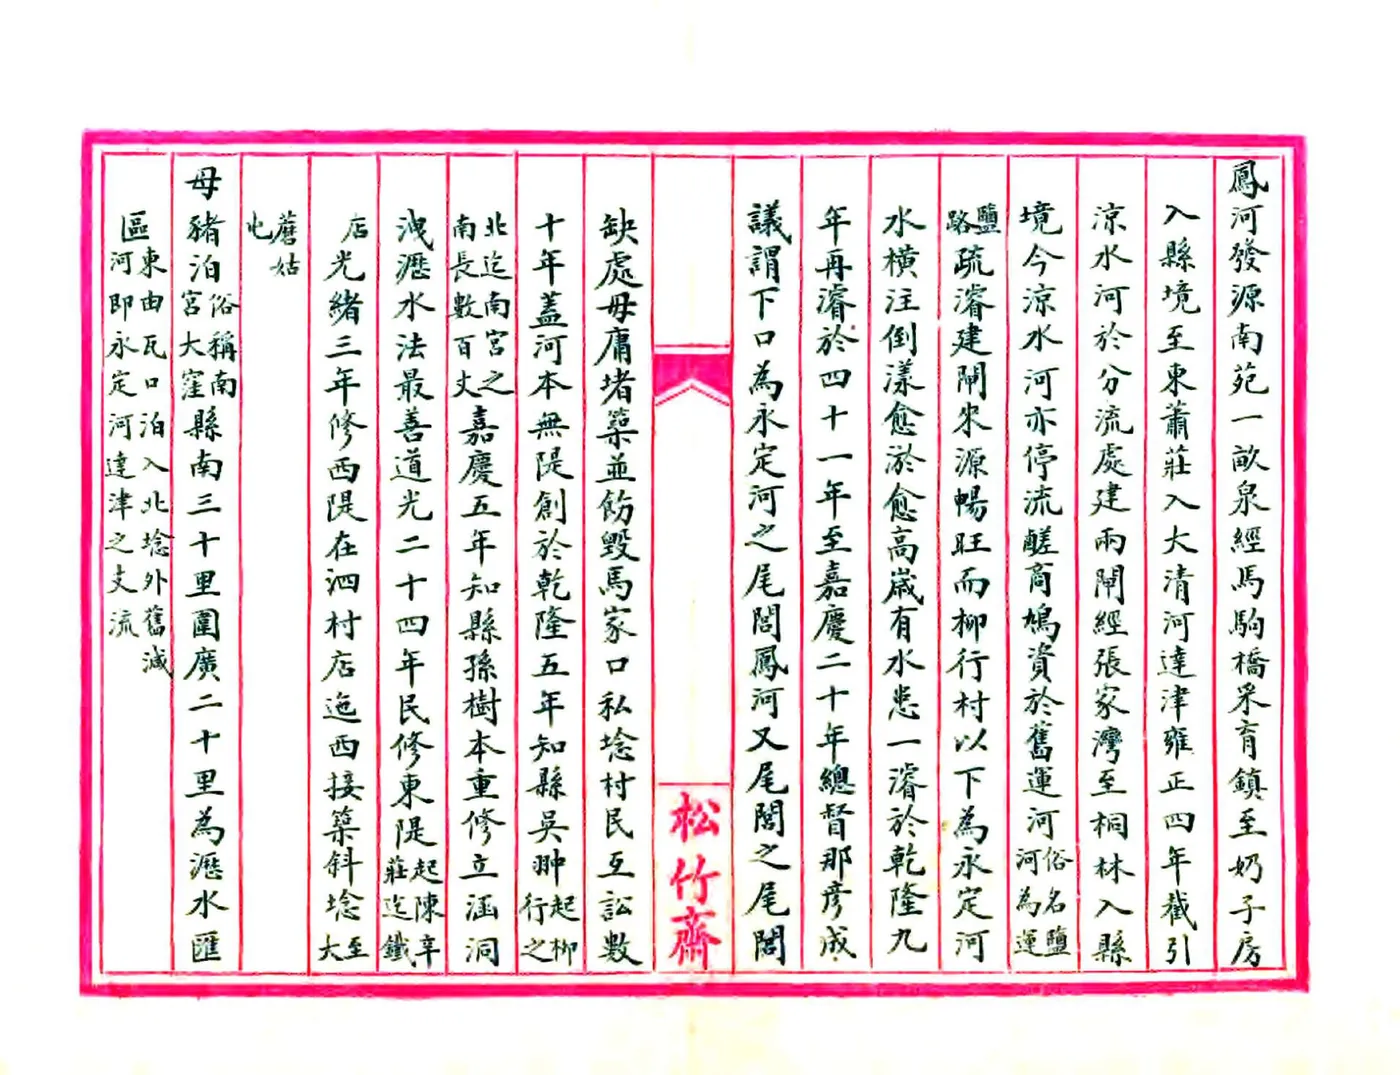 鳳河發源南苑一畝泉經馬駒橋采育鎮至奶子房
入縣境至東蕭莊入大清河達津雍正四年截引
涼水河於分流處建兩閘經張家灣至桐林入縣
境今涼水河亦停流鹺商鳩資於舊運河俗名鹽河為運
鹽路疏濬建閘來源暢旺而柳行村以下為永定河
水橫注倒漾愈淤愈高嵗有水患一濬於乾隆九
年再濬於四十一年至嘉慶二十年總督那彦成
議謂下口為永定河之尾閭鳳河又尾閭之尾閭
松竹齋
缺處毋庸堵築並飭毀馬家口私埝村民互訟數
十年蓋河本無隄創於乾隆五年知縣吳翀起柳行之
北迄南宮之南長數百丈嘉慶五年知縣孫樹本重修立涵洞
洩瀝水法最善道光二十四年民修東隄起陳辛莊迄鐵
店光緒三年修西隄在泗村店迤西接築斜埝至大
蘑姑屯
母豬泊俗稱南宮大窪縣南三十里圍廣二十里為瀝水匯
區東由瓦口泊入北埝外舊減河即永定河達津之支流